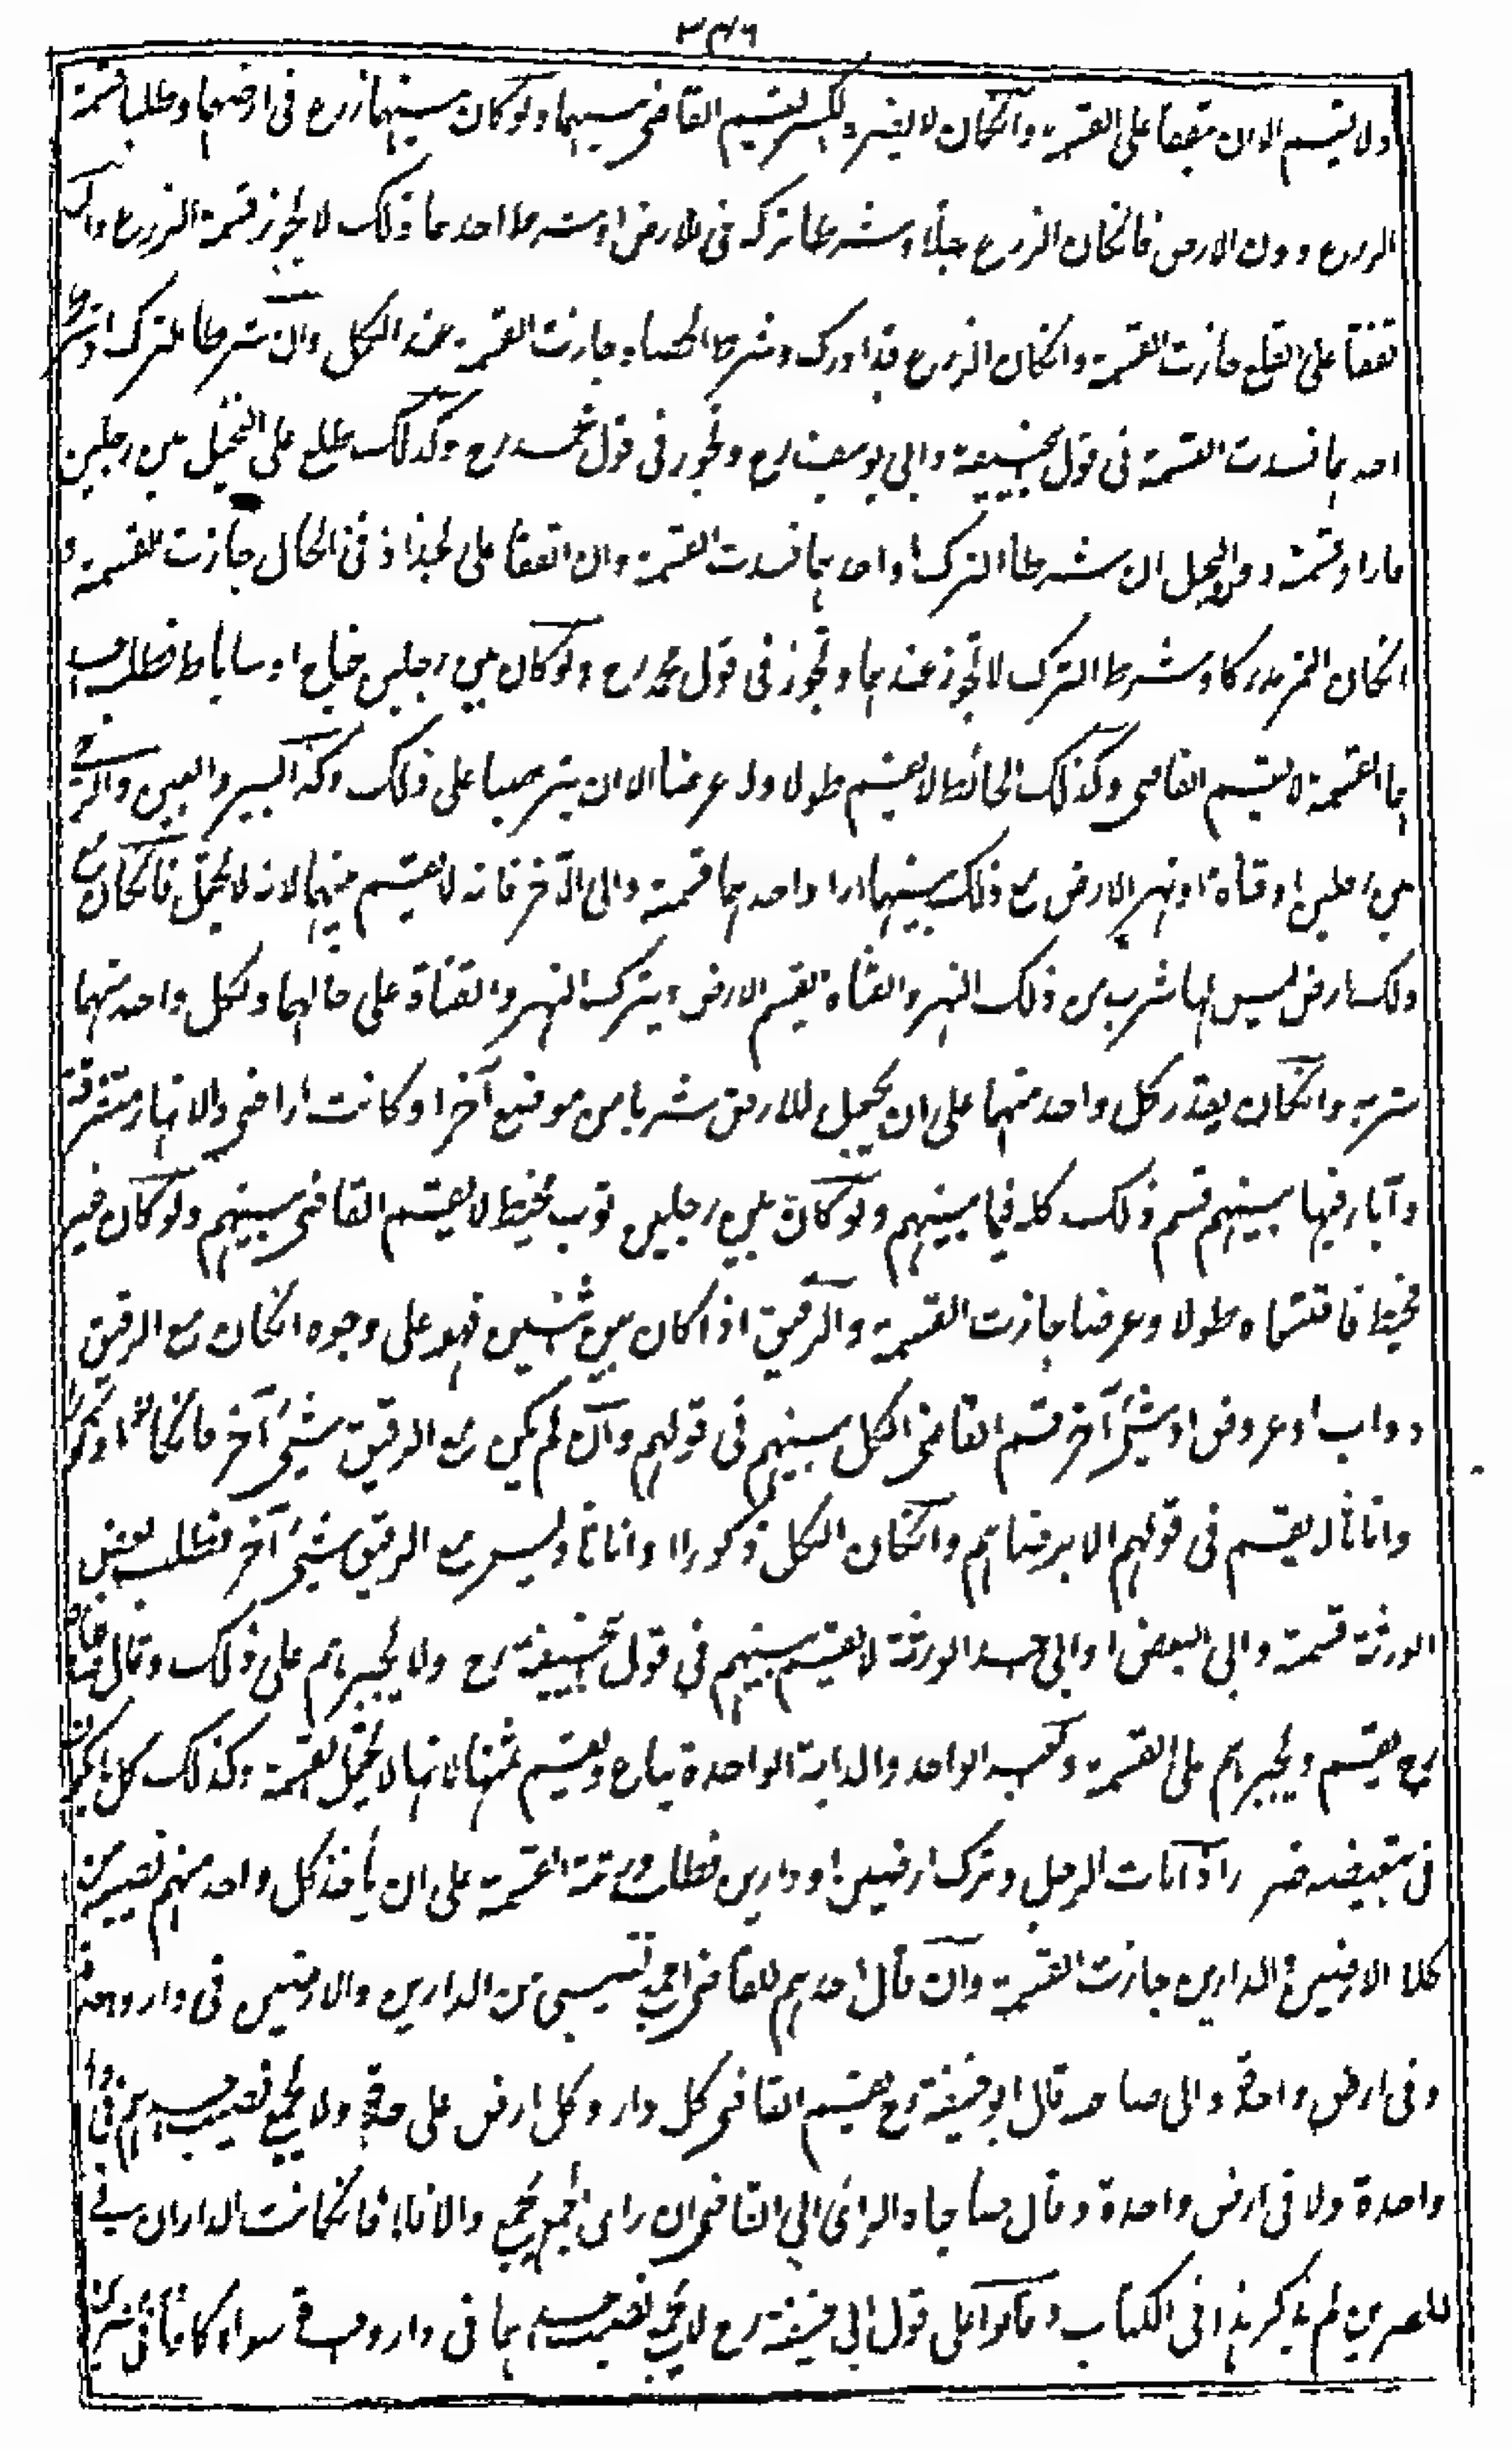 ٣٤٦
ولا يقسم الا ان يتفقا على القسمة وان كان لا يضر الكسر يقسم القاضي بينهما ولو كان بينهما زرع في ارضهما وطلبا قسمة
الزرع دون الارض فان كان الزرع بقلا وشرطا تركه في الارض او شرط احدهما ذلك لا يجوز قسمة الزرع وان
تفقا على القلع جازت القسمة وان كان الزرع قد ادرك وشرطا الحصاد جازت القسمة عند الكل وان شرطا الترك او شرط
احدهما فسدت القسمة في قول ابيحنيفة وابي يوسف رح وتجوز في قول محمد رح وكذلك طلع على النخيل بين رجلين
فارادا قسمته دون النخل ان شرطا الترك او احدهما فسدت القسمة وان اتفقا على الجذاذ في الحال جازت القسمة و
انكان الثمر مدركا وشرط الترك لا تجوز عندهما وتجوز في قول محمد رح ولو كان بين رجلين جناح او ساباط فطلب احد
هما القسمة لا يقسم القاضي وكذلك الحائط لا يقسم طولا ولا عرضا الا ان يتراضيا على ذلك وكذا البير والعين والرحى
بين رجلين او قناة او نهر لا ارض مع ذلك بينهما اراد احدهما قسمته وابى الآخر فانه لا يقسم بينهما لانه لا يحتمل فان كان مع
ذلك ارض ليس لها شرب من ذلك النهر والقناة يقسم الارض ويترك النهر والقناة على حالهما ولكل واحد منهما
شربه وان كان يقدر كل واحد منهما على ان يجعل للارض شربا من موضع آخر او كانت اراضي والانهار متفرقة
وآبار فيها بينهم قسم ذلك كله فيما بينهم ولو كان بين رجلين ثوب مخيط لا يقسم القاضي بينهم ولو كان غير
مخيط فاقتسماه طولا وعرضا جازت القسمة والرقيق اذا كان بين اثنين فهو على وجوه انكان مع الرقيق
دواب او عروض او شئ آخر قسم القاضي الكل بينهم في قولهم وان لم يكن مع الرقيق شئ آخر فانكانوا ذكورا
واناثا لا يقسم في قولهم الا برضاهم وان كان الكل ذكورا او اناثا وليس مع الرقيق شئ آخر فطلب بعض
الورثة قسمة وابى البعض او ابى احد الورثة لا يقسم بينهم في قول ابيحنيفة رح ولا يجبرهم على ذلك وقال صاحباه
رح يقسم ويجبرهم على القسمة والعبد الواحد والدابة الواحدة يباع ويقسم ثمنها لانها لا تحتمل القسمة وكذلك كل ما كان
في تبعيضه ضرر اذا مات الرجل وترك ارضين او دارين فطلب ورثته القسمة على ان يأخذ كل واحد منهم نصيبه من
كلا الارضين والدارين جازت القسمة وان قال احدهم للقاضي اجمع نصيبي من الدارين والارضين في دار واحدة
وفي ارض واحدة وابى صاحبه قال ابو حنيفة رح يقسم القاضي كل دار وكل ارض على حدة ولا يجمع نصيب احدهم في دار
واحدة ولا في ارض واحدة وقال صاحباه الراي الى القاضي ان راى الجمع يجمع والا فلا فانكانت الداران في
المصرين لم يذكر هذا في الكتاب وقالوا على قول ابي حنيفة رح لا يجمع نصيب احدهما في دار واحدة سواء كانتا في مصرين